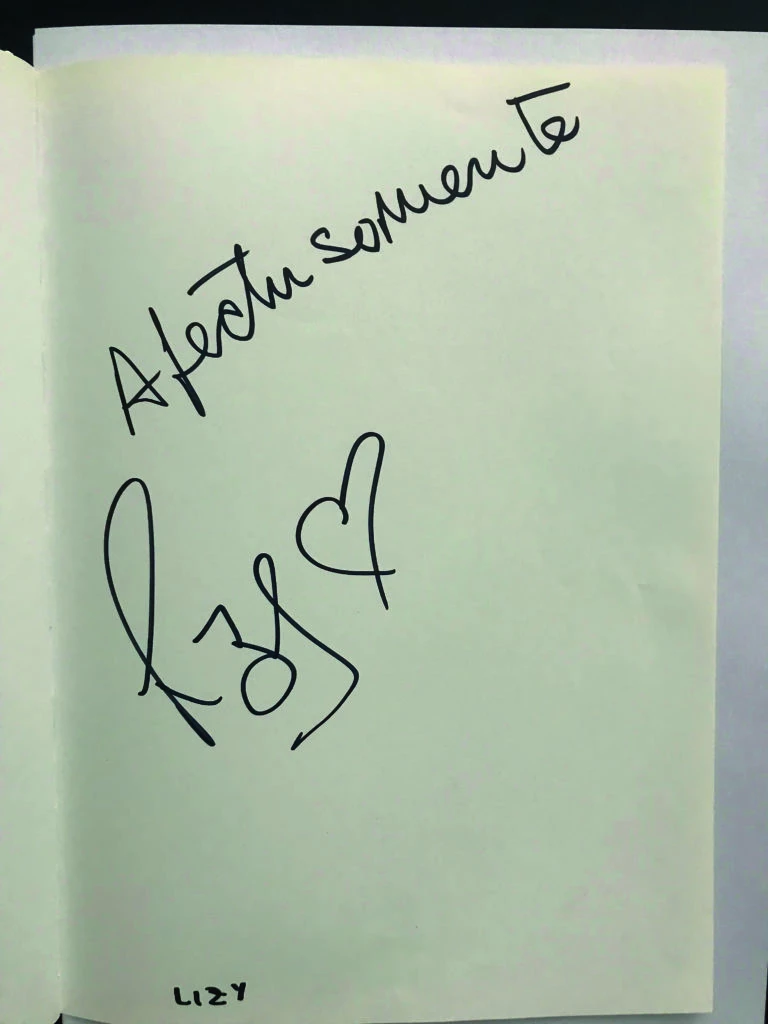 Afectusomente
Lizy
LIZY